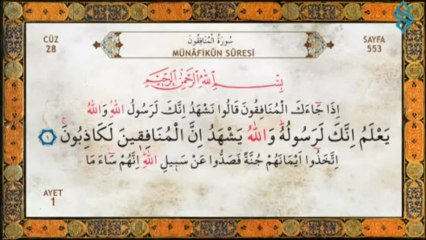 CÜZ
28
سُورَةُ الْمُنَافِقُونَ
MÜNÂFİKÛN SÛRESİ
SAYFA
553
بِسْمِ اللّٰهِ الرَّحْمٰنِ الرَّحٖيمِ
اِذَا جَٓاءَكَ الْمُنَافِقُونَ قَالُوا نَشْهَدُ اِنَّكَ لَرَسُولُ اللّٰهِ وَاللّٰهُ
يَعْلَمُ اِنَّكَ لَرَسُولُهُ وَاللّٰهُ يَشْهَدُ اِنَّ الْمُنَافِقٖينَ لَكَاذِبُونَ ١
اِتَّخَذُٓوا اَيْمَانَهُمْ جُنَّةً فَصَدُّوا عَنْ سَبٖيلِ اللّٰهِ اِنَّهُمْ سَٓاءَ مَا
AYET
1